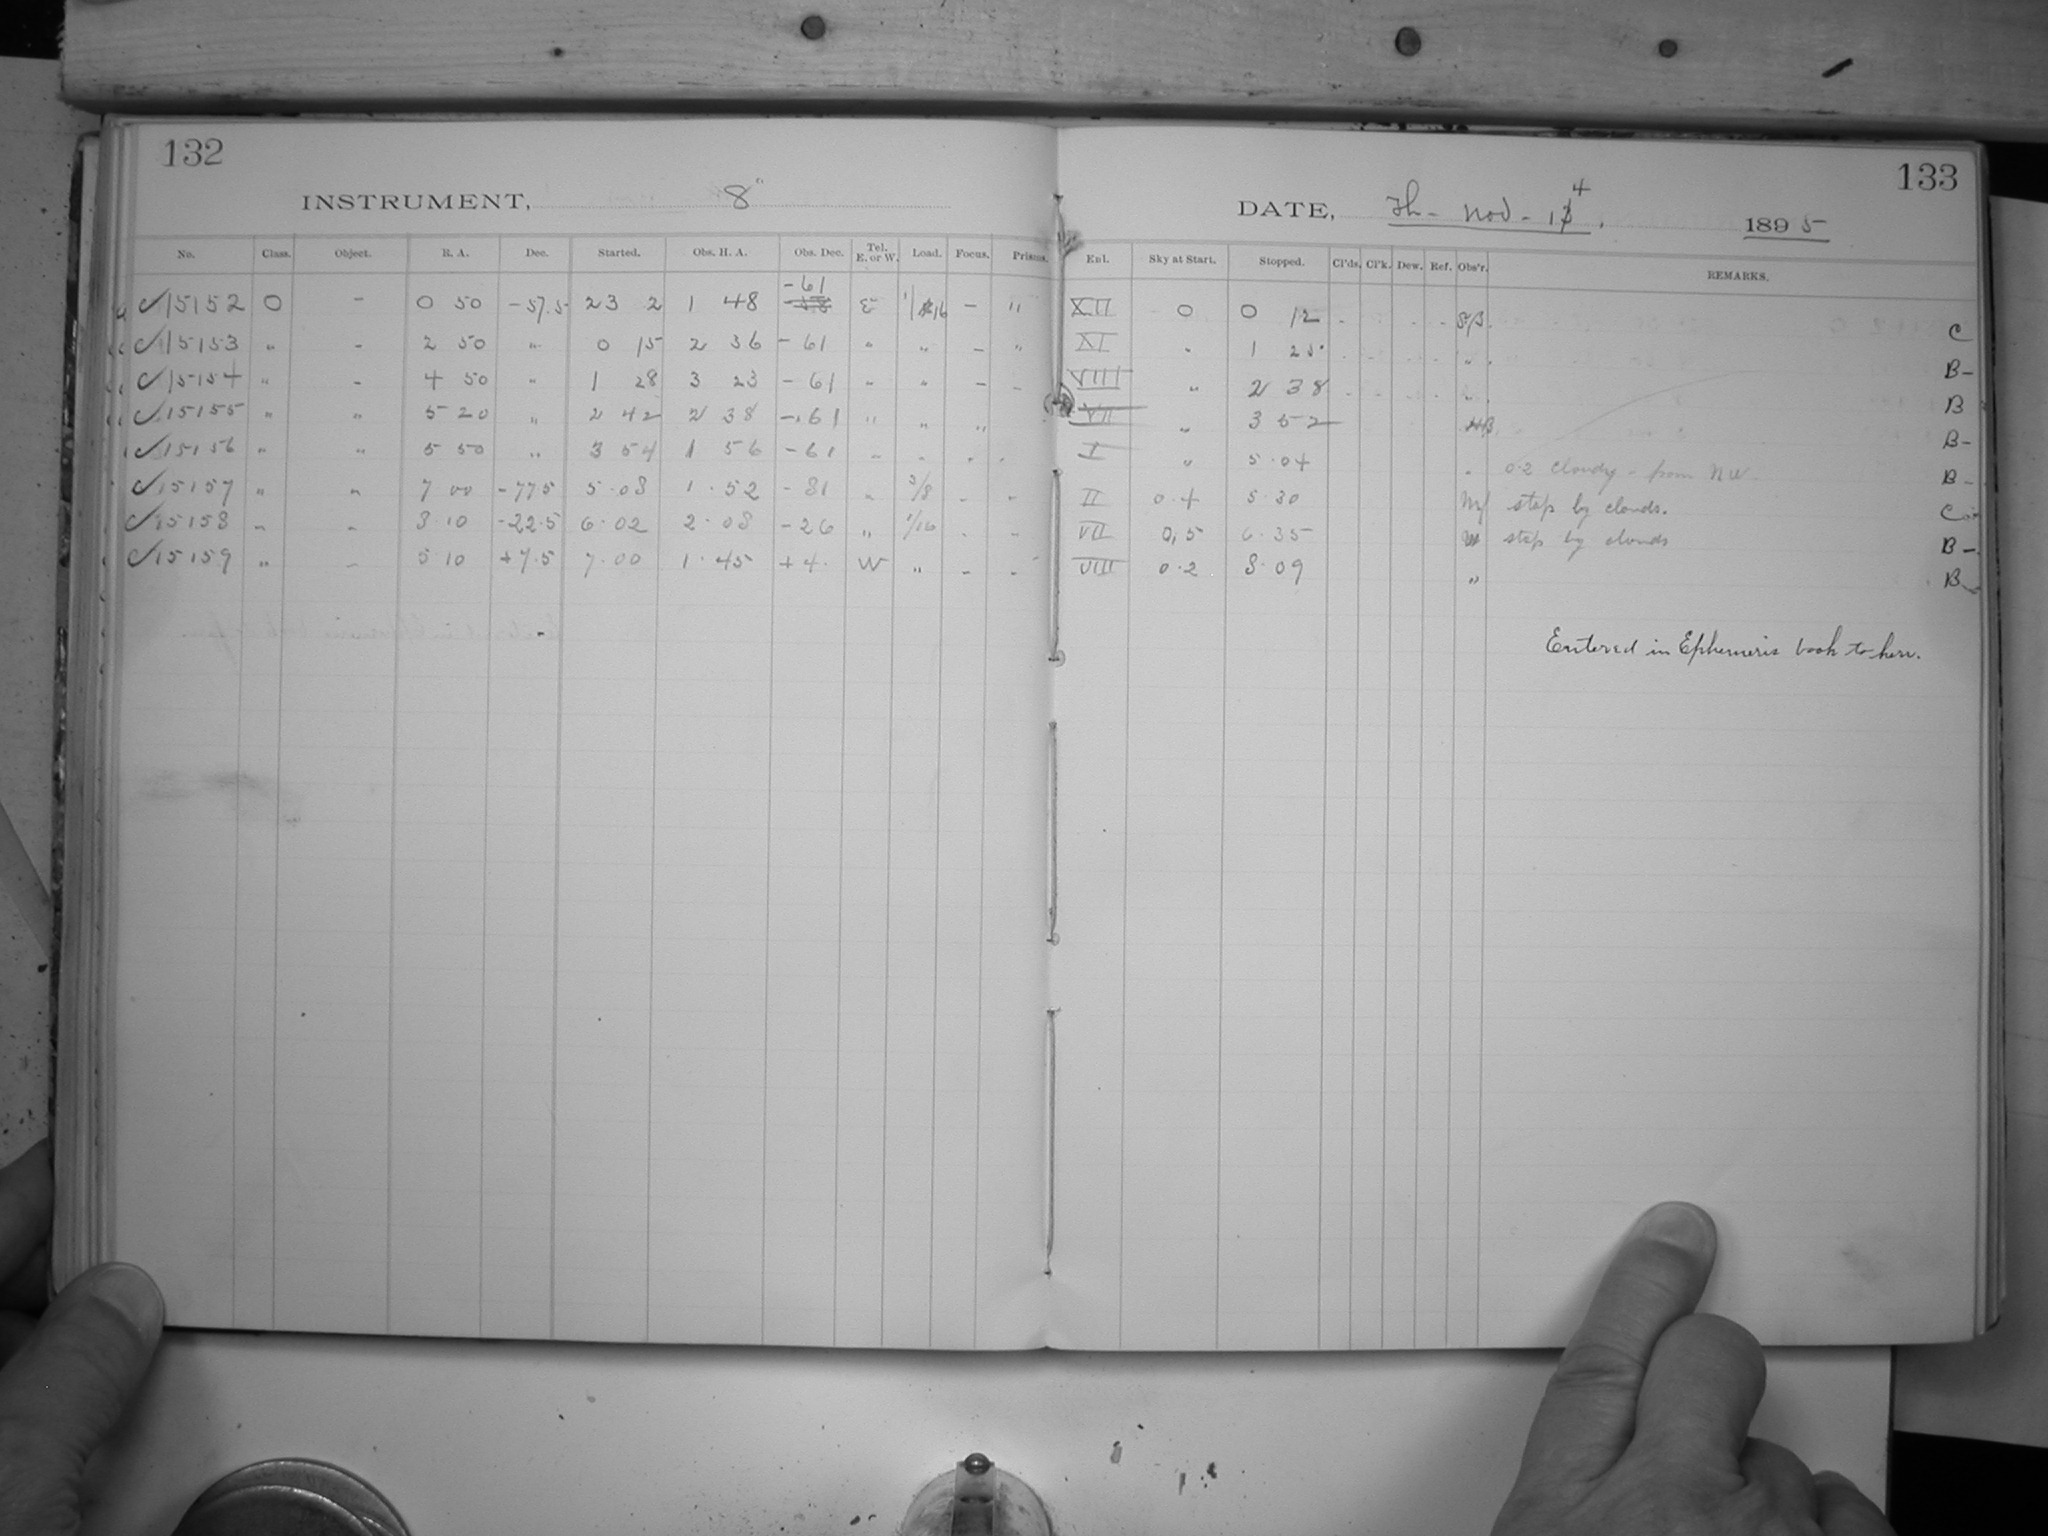 132
INSTRUMENT, 8"
No. Class. Object. R. A. Dec. Started. Obs. H. A. Obs. Dec. Tel. E. or W. Load. Focus. Prisms.
-61
✓15152 O - 0 50 -57.5 23 2 1 48 -58 E 1/16 - "
✓15153 " - 2 50 " 0 15 2 36 -61 " " - "
✓15154 " - 4 50 " 1 28 3 23 -61 " " - -
✓15155 " " 5 20 " 2 42 2 38 -61 " " "
✓15156 " " 5 50 " 3 54 1 56 -61 " " " "
✓15157 " " 7 00 -77.5 5.08 1.52 -81 " 3/8 - -
✓15158 " " 3 10 -22.5 6.02 2.08 -26 " 1/16 - -
✓15159 " - 5 10 +7.5 7.00 1.45 +4. W " - -
133
DATE, Th - Nov - 14. 1895
Exl. Sky at Start. Stopped. Cl'ds. Cl'k. Dew. Ref. Obs'r. REMARKS.
XII 0 0 12 - - - - SB. C
XI " 1 25 - - - - " B-
VIII " 2 38 - - - - " B
VII " 3 52 HB B-
I " 5.04 " 0.2 cloudy - from NW. B-
II 0.4 5.30 stop by clouds. C
VII 0,5 6.35 stop by clouds B-
VIII 0.2 8.09 " B
Entered in Ephemeris book to here.